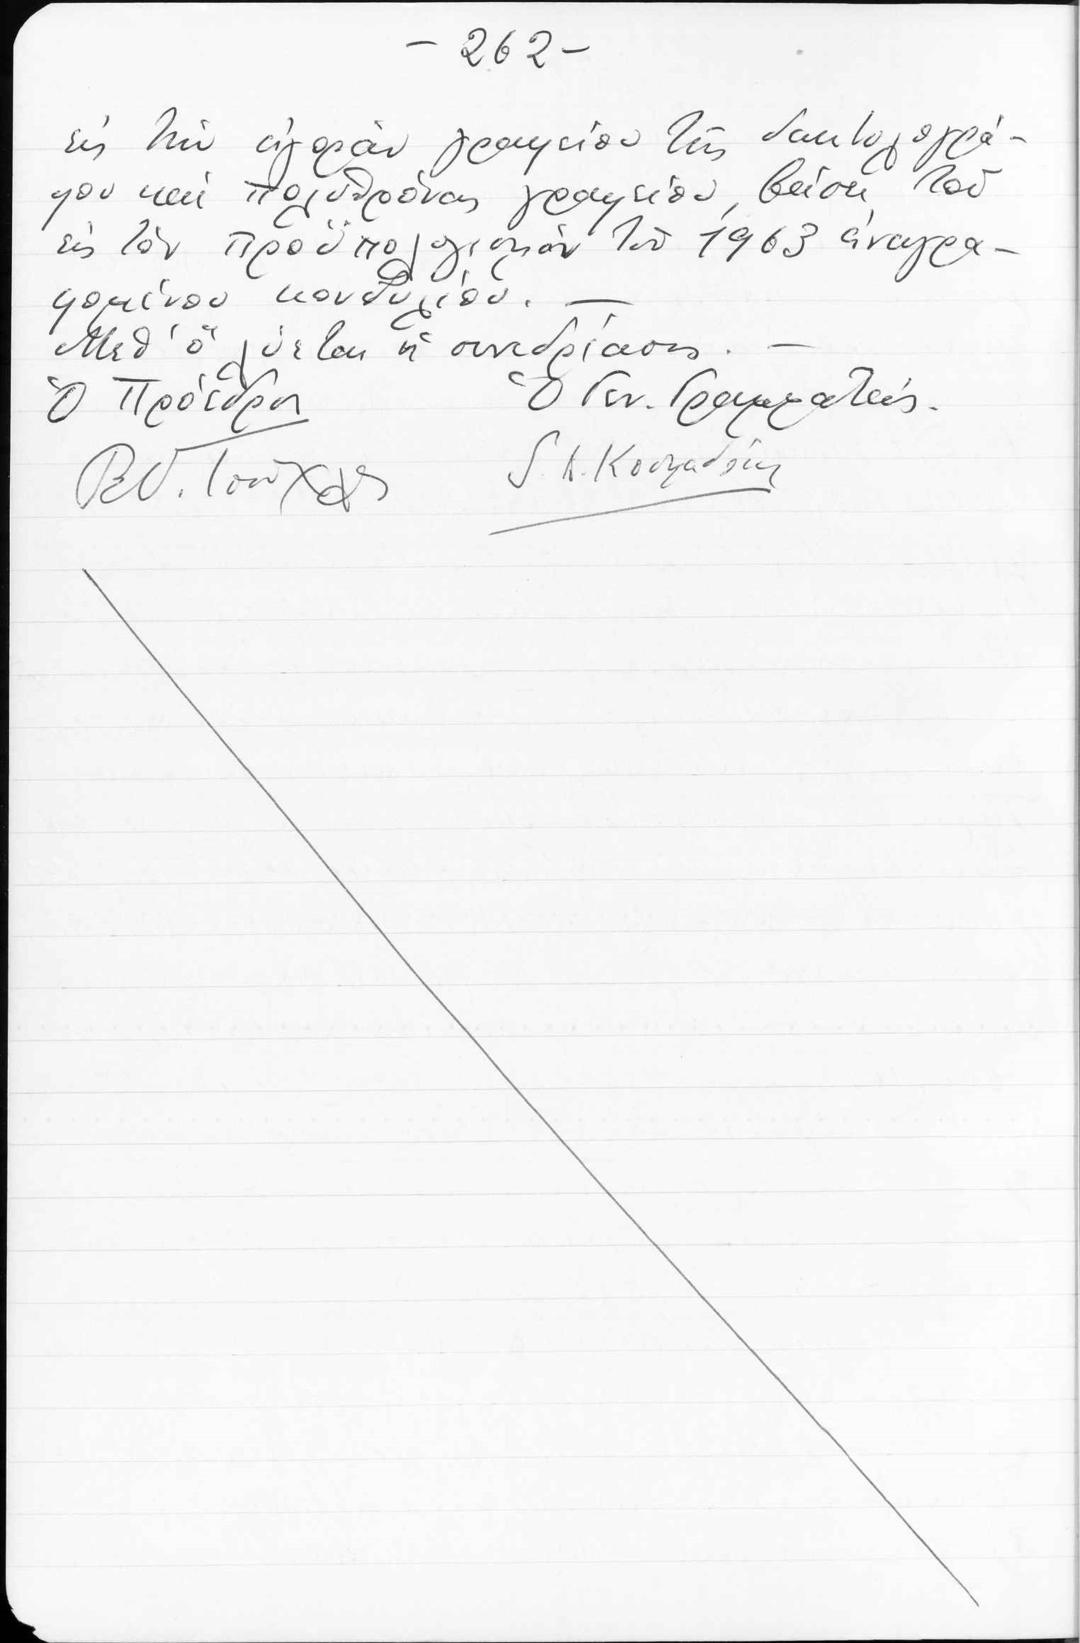 - 262 -
εἰς τὴν ἀγορὰν γραφείου τῆς δακτυλογρά-
φου καὶ πολυθρόνας γραφείου, βάσει τοῦ
εἰς τὸν προϋπολογισμὸν τοῦ 1963 ἀναγρα-
φομένου κονδυλίου. —
Μεθ' ὃ λύεται ἡ συνεδρίασις. —
Ὁ Πρόεδρος Ὁ Γεν. Γραμματεύς.